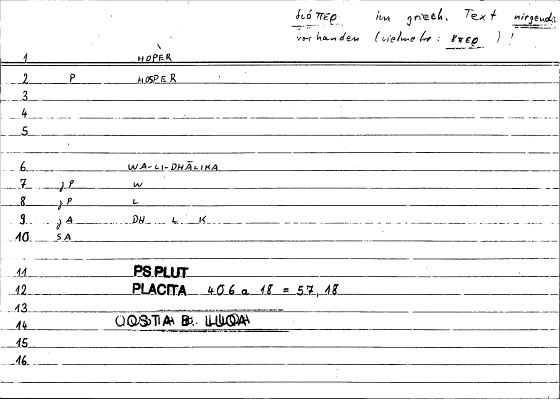 διόπερ im griech. Text nirgends
vorhanden (vielmehr: ὅπερ) !
1 HOPER
2 P HOSPER
3
4
5
6 WA-LI-DHĀLIKA
7 jP W
8 jP L
9 jA DH L K
10 SA
11 PS PLUT
12 PLACITA 406 a 18 = 57, 18
13
14
15
16